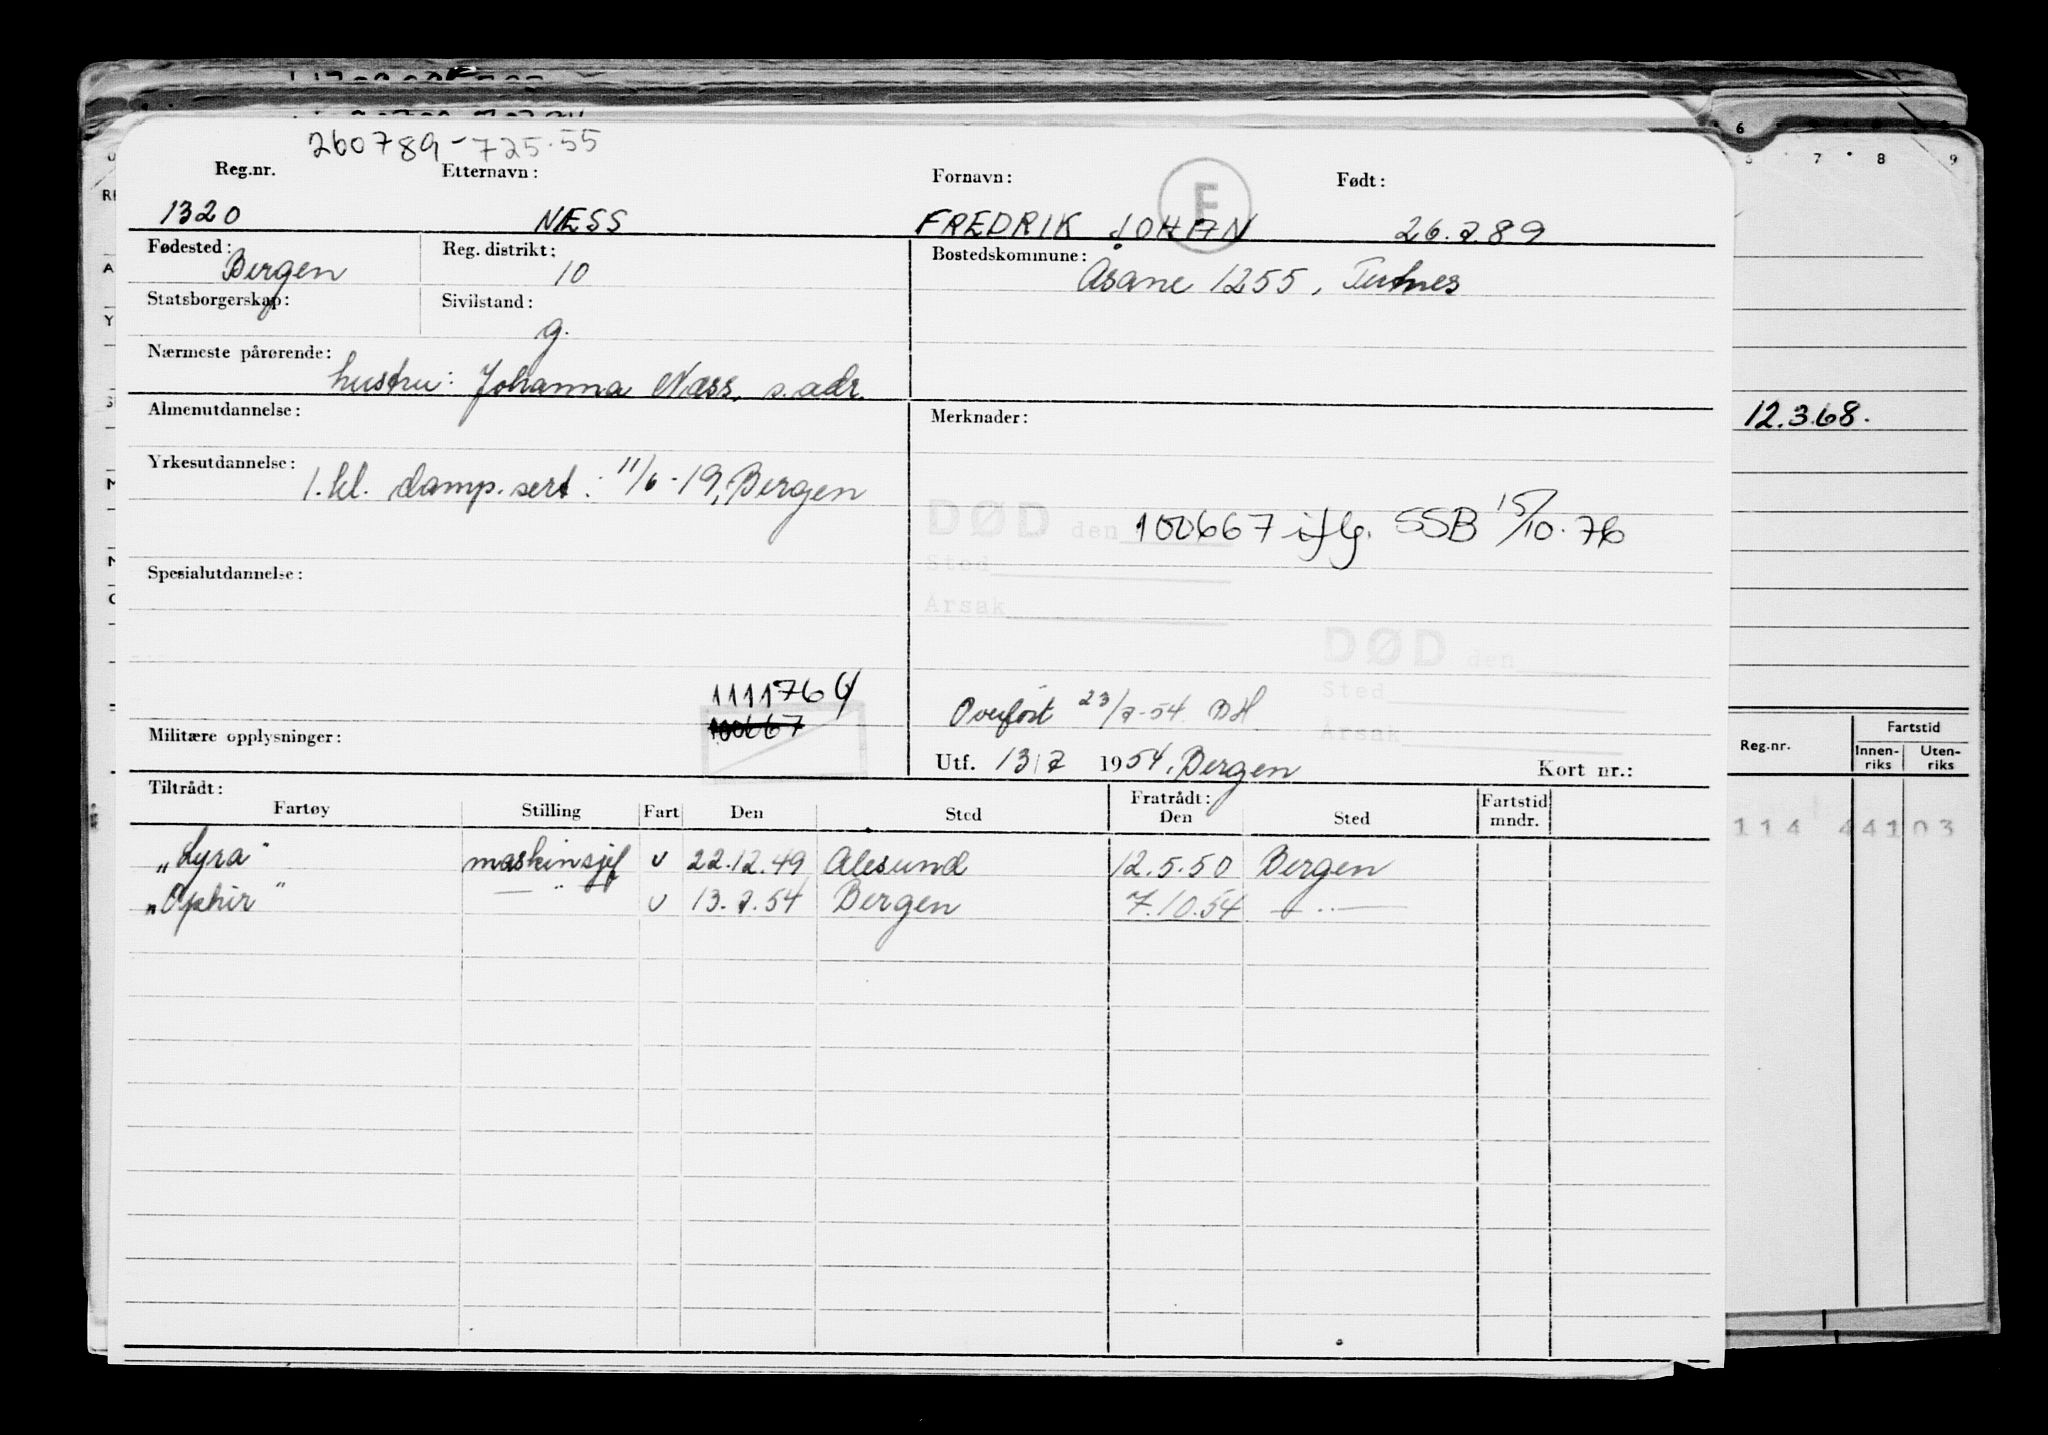 260789-725.55
Reg.nr. Etternavn: Fornavn: Født:
1320 NÆSS FREDRIK JOHAN 26.7.89
E
Fødested: Bergen Reg. distrikt: 10 Bostedskommune: Åsane 1255, Tertnes
Statsborgerskap: Sivilstand: g.
Nærmeste pårørende:
hustru: Johanna Næss, s. adr.
Almenutdannelse: Merknader:
Yrkesutdannelse: 1. kl. damp. sert: 11/6-19, Bergen
DØD den 100667 iflg. SSB 15/10.76
Sted
Årsak
Spesialutdannelse:
DØD den
Sted
Årsak
111176
100667
Overført 23/7-54 BH
Militære opplysninger: Utf. 13/7 1954, Bergen Kort nr.:
Tiltrådt: Fratrådt:
Fartøy Stilling Fart Den Sted Den Sted Fartstid mndr.
"Lyra" maskinsjef u 22.12.49 Ålesund 12.5.50 Bergen
"Ophir" — " — u 13.7.54 Bergen 7.10.54 — " —
6
7 8 9
12.3.68.
Reg.nr. Fartstid
Innenriks Utenriks
114 44103